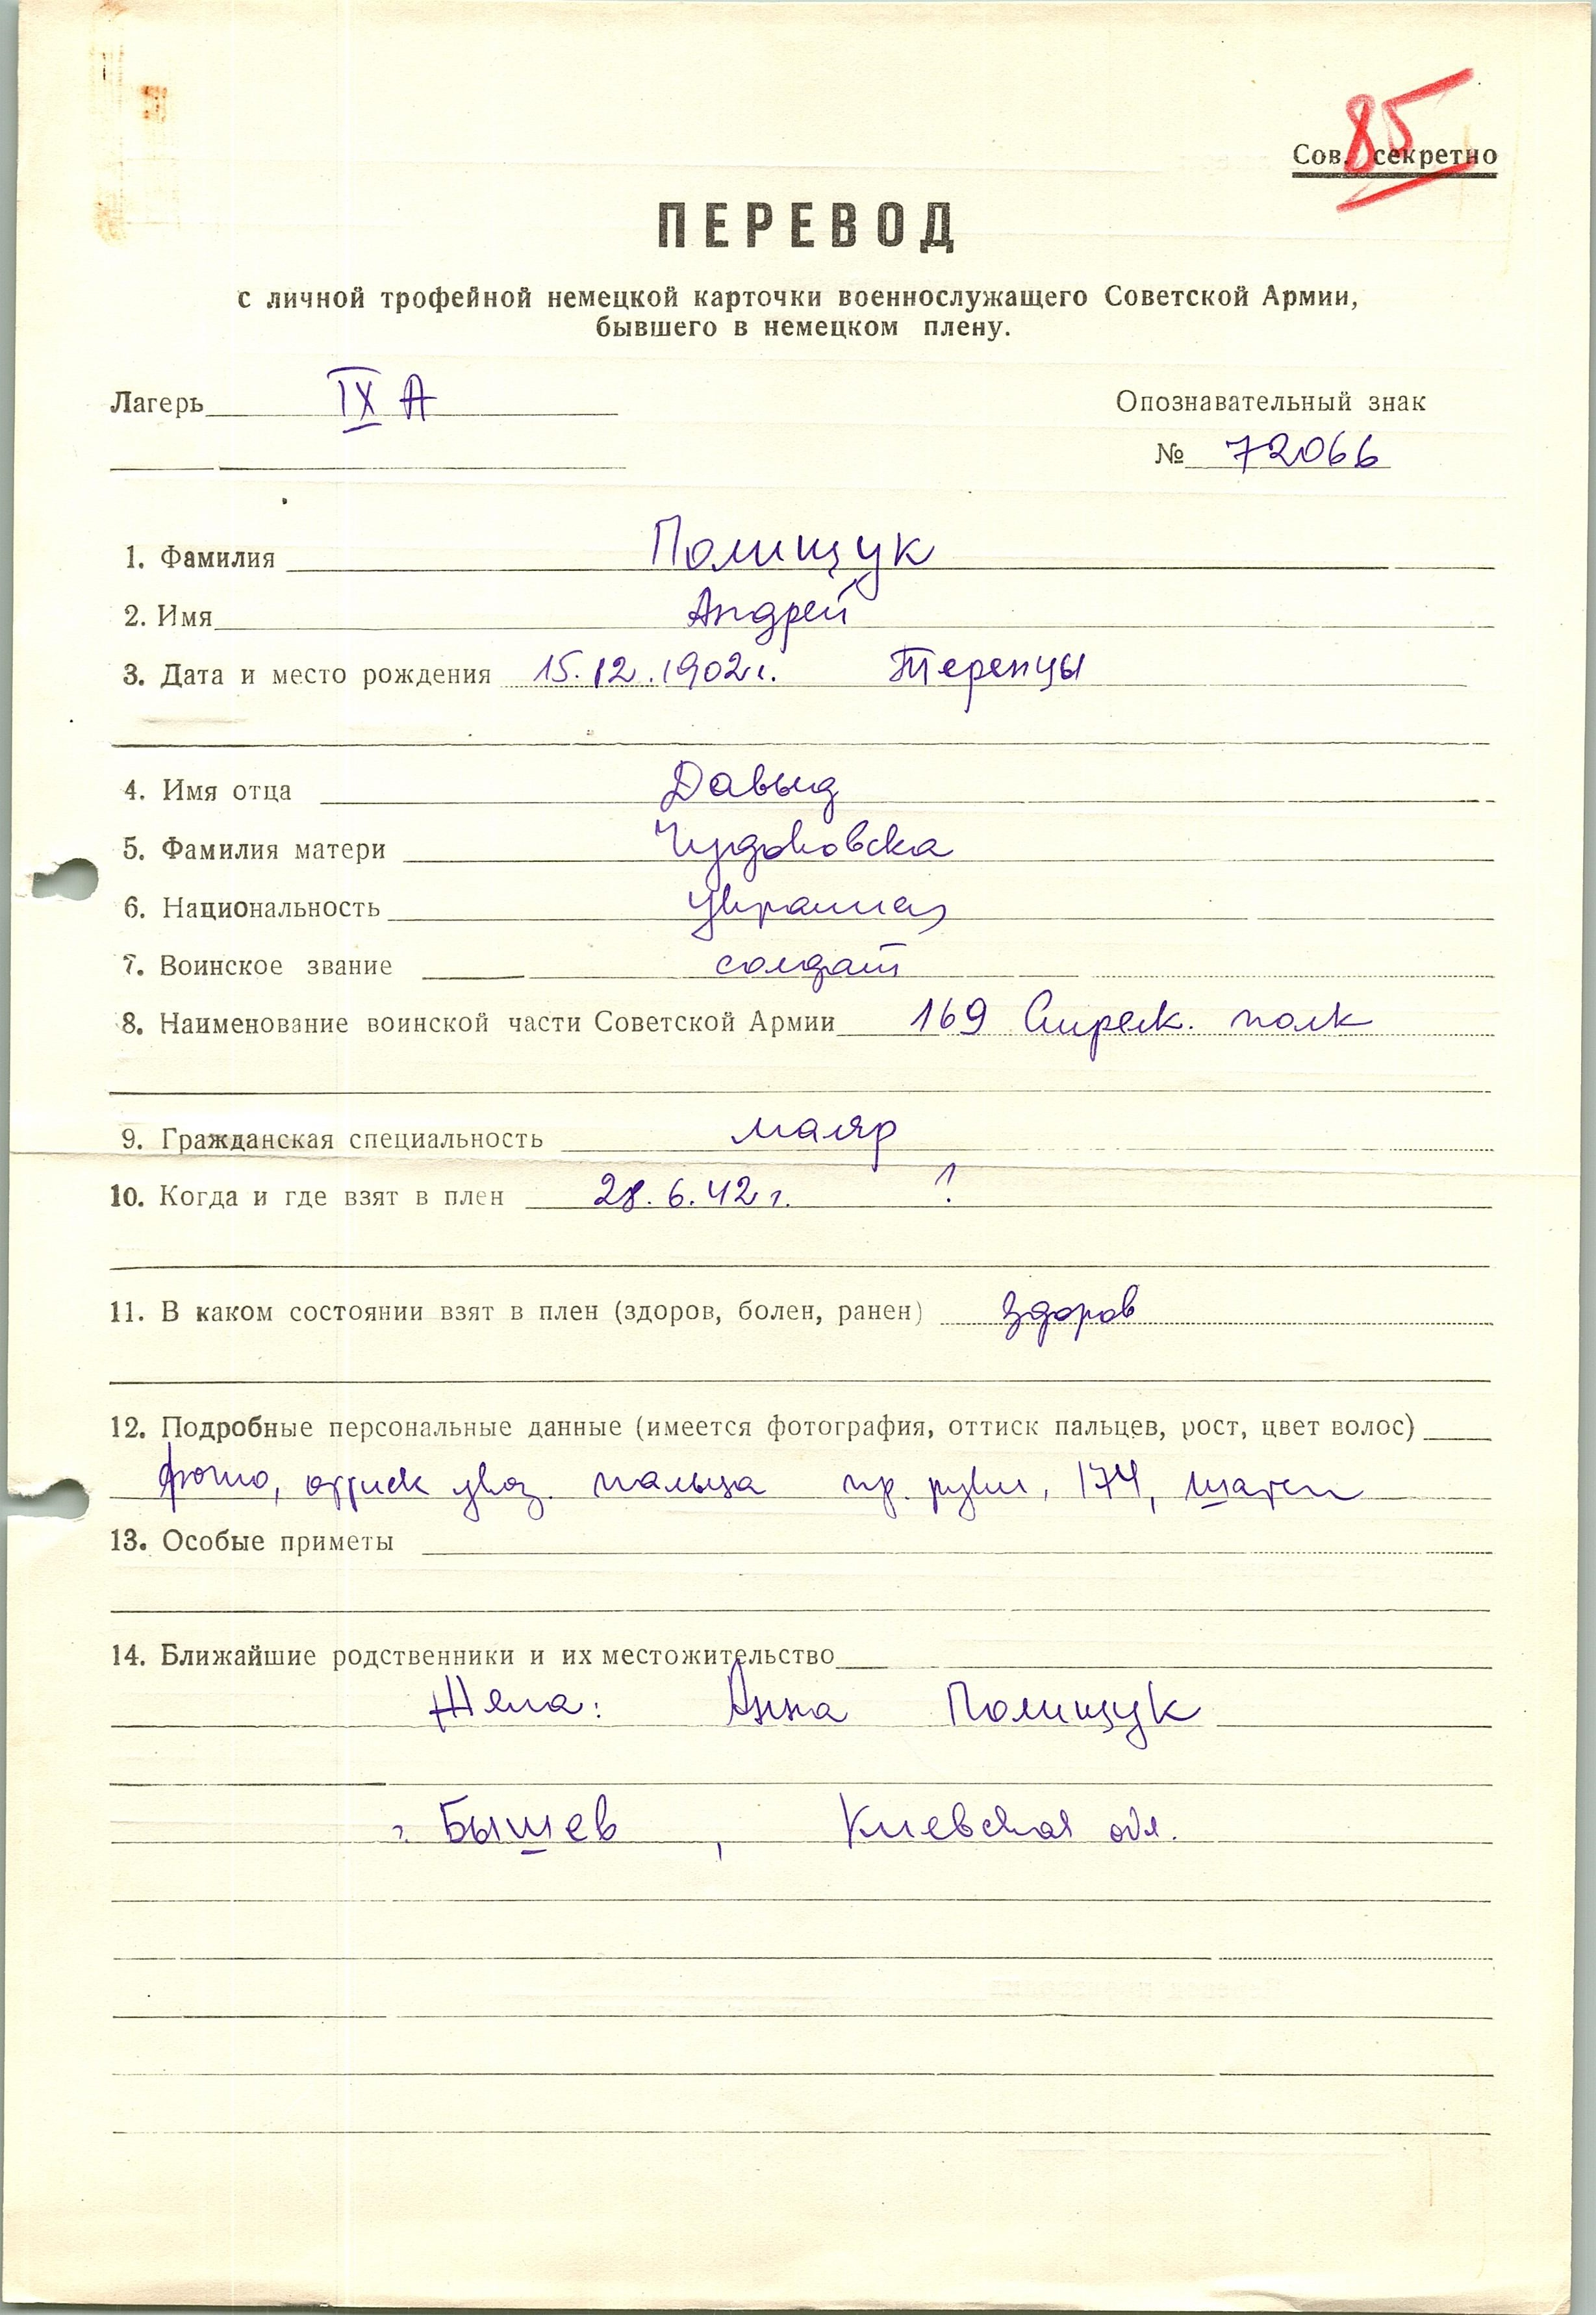 85
Сов. секретно
ПЕРЕВОД
с личной трофейной немецкой карточки военнослужащего Советской Армии,
бывшего в немецком плену.
Лагерь IX А
Опознавательный знак
№ 72066
1. Фамилия Полищук
2. Имя Андрей
3. Дата и место рождения 15.12.1902 г. Теренцы
4. Имя отца Давыд
5. Фамилия матери Чудновска
6. Национальность украинец
7. Воинское звание солдат
8. Наименование воинской части Советской Армии 169 полк
9. Гражданская специальность маляр
10. Когда и где взят в плен 28.6.42 г. ?
11. В каком состоянии взят в плен (здоров, болен, ранен) здоров
12. Подробные персональные данные (имеется фотография, оттиск пальцев, рост, цвет волос)
фото, оттиск указ. пальца пр. руки, 174, шатен
13. Особые приметы
14. Ближайшие родственники и их местожительство
Жена: Анна Полищук
г. Бышев, Киевская обл.